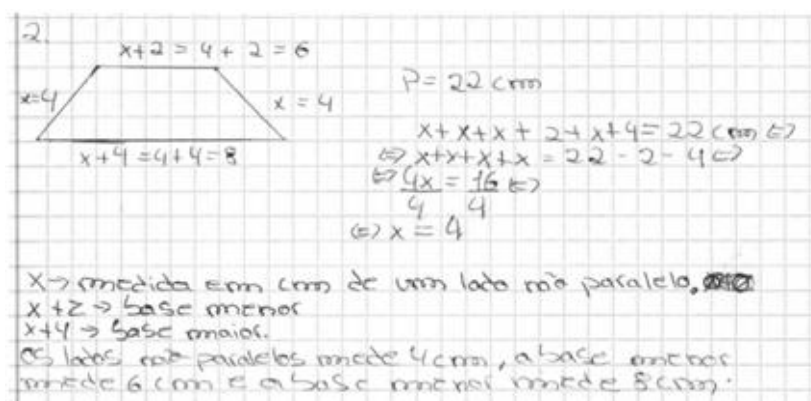 2.
x+2 = 4 + 2 = 6
x=4
x = 4
x+4 = 4+4 = 8
P = 22 cm
x + x + x + 2 + x + 4 = 22 cm ⇔
⇔ x+x+x+x = 22 - 2 - 4 ⇔
⇔ 4x/4 = 16/4 ⇔
⇔ x = 4
x → medida em cm de um lado não paralelo.
x + 2 → base menor
x+4 → base maior.
os lados não paralelos mede 4 cm, a base menor
mede 6 cm e a base menor mede 8 cm.